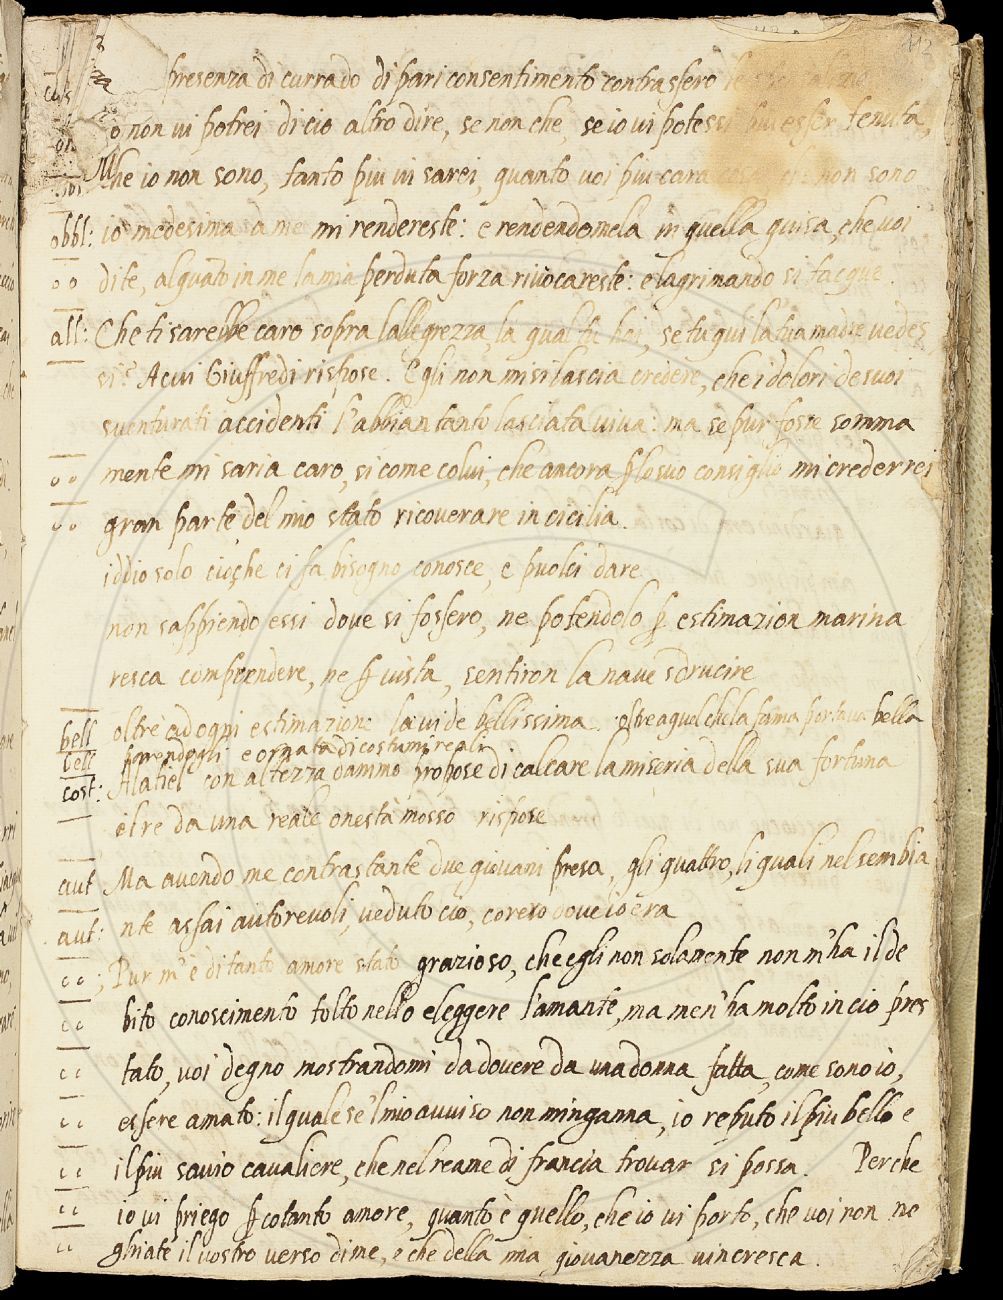 112
presenza di currado di pari consentimento contrasfero le
o non ui potrei di cio altro dire, se non che, se io ui potessi piu esser tenuta,
che io non sono, tanto piu ui sarei, quanto uoi piu cara che non sono
obbl: io medesima a me mi rendereste: e rendendomela in quella guisa, che uoi
dite, alquato in me la mia perduta forza riuocareste: e lagrimando si tacque.
all: Che ti sarebbe caro sopra l'allegrezza, la qual tu hai, se tu qui la tua madre uedes
si? A cui Giuffredi rispose. Egli non mi si lascia credere, che i dolori de suoi
suenturati accidenti l'abbian tanto lasciata uiua: ma se pur fosse somma
mente mi saria caro, si come colui, che ancora p lo suo consiglio mi crederrei
gran parte del mio stato ricouerare in cicilia.
iddio solo cioche ci fa bisogno conosce, e puolci dare
non sappiendo essi doue si fossero, ne potendolo p estimazion marina
resca comprendere, ne p uista, sentiron la naue sdrucire
bell oltre ad ogni estimazione la uide bellissima. oltre a quel che la fama portaua bella
parendogli e ornata di costumi reali
bell Alatiel con altezza d'animo propose di calcare la miseria della sua fortuna
cost: el re da una reale onestà mosso rispose
aut Ma auendo me contrastante due giouani presa, gli quattro, li quali nel sembia
aut: nte assai autoreuoli, ueduto cio, corsero doue io era
Pur m'è di tanto amore stato grazioso, che egli non solamente non m'ha il de
bito conoscimento tolto nello eleggere l'amante, ma men'ha molto in cio pres
tato, uoi degno mostrandomi da douere da una donna fatta, come sono io,
essere amato: il quale se'l mio auuiso non minganna, io reputo il piu bello e
il piu sauio caualiere, che nel reame di francia trouar si possa. Perche
io ui priego p cotanto amore, quanto è quello, che io ui porto, che uoi non ne
ghiate il uostro uerso di me, e che della mia giouanezza uincresca.